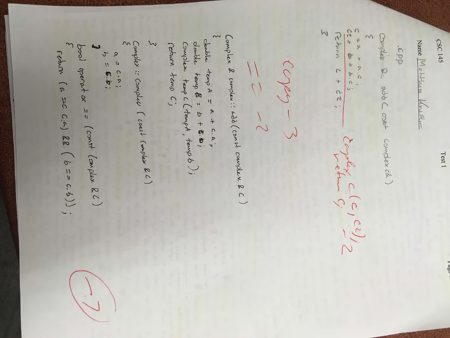 CSC 145
Test 1
Name
.cpp
Complex & add (const complex &)
{
return c + c2;
}
Complex c (c, c2);
return c;
-2
copy - 3
== -2
Complex & complex :: add (const complex & c)
{
double tempA = a + c.a;
double tempB = b + c.b;
complex tempC (tempA, tempB);
return tempC;
}
Complex :: complex (const complex & c)
{
a = c.a;
b = c.b;
}
bool operator == (const complex & c)
return (a == c.a) && (b == c.b);
-7